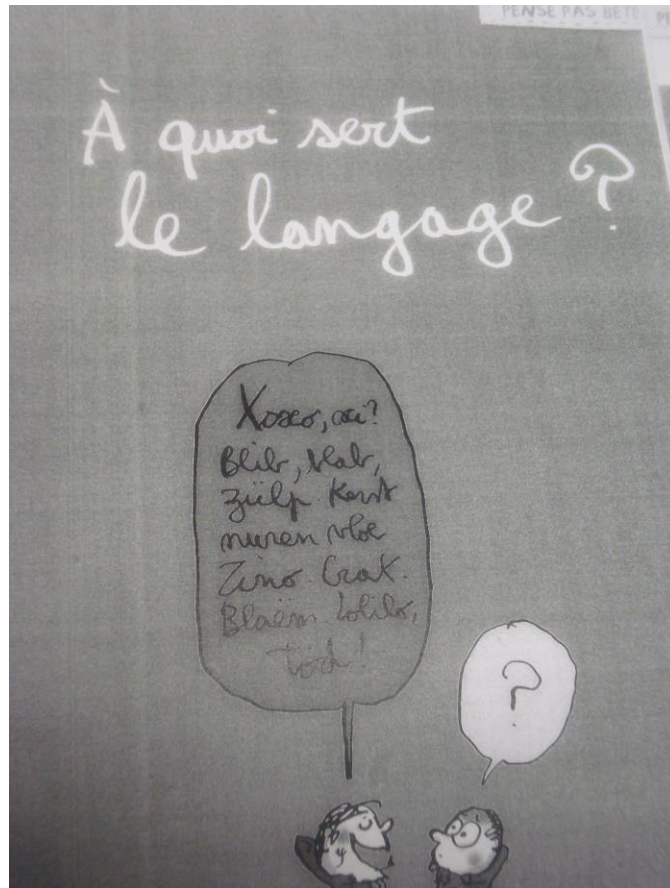 PENSE PAS BETE
À quoi sert
le langage ?
Blib, blab,
zülp. Kerst
nuren vloe
Zino. Crak.
Blaëm. Lolilo,
töd !
?